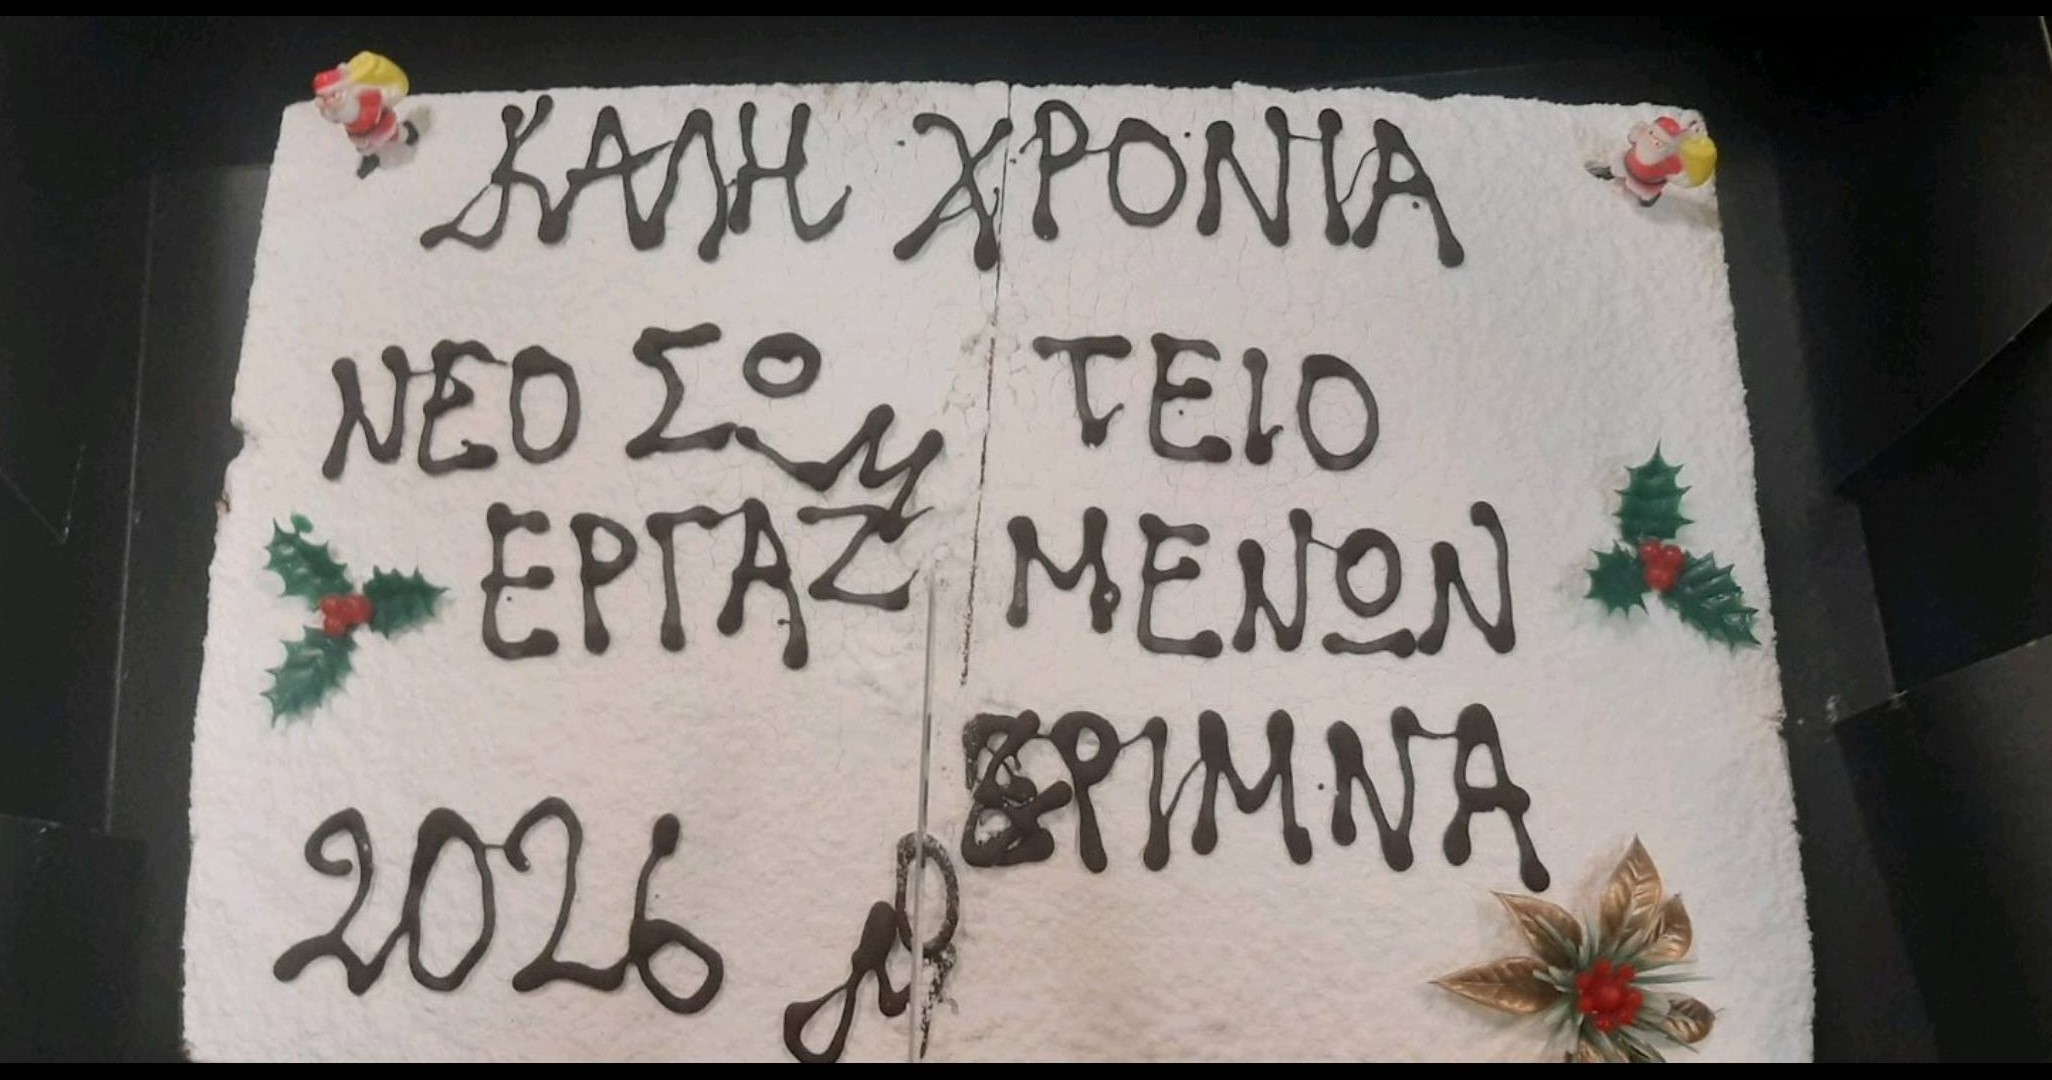 ΚΑΛΗ ΧΡΟΝΙΑ
ΝΕΟ ΣΩΜ ΤΕΙΟ
ΕΡΓΑΖ ΜΕΝΩΝ
ΕΡΙΜΝΑ
2026